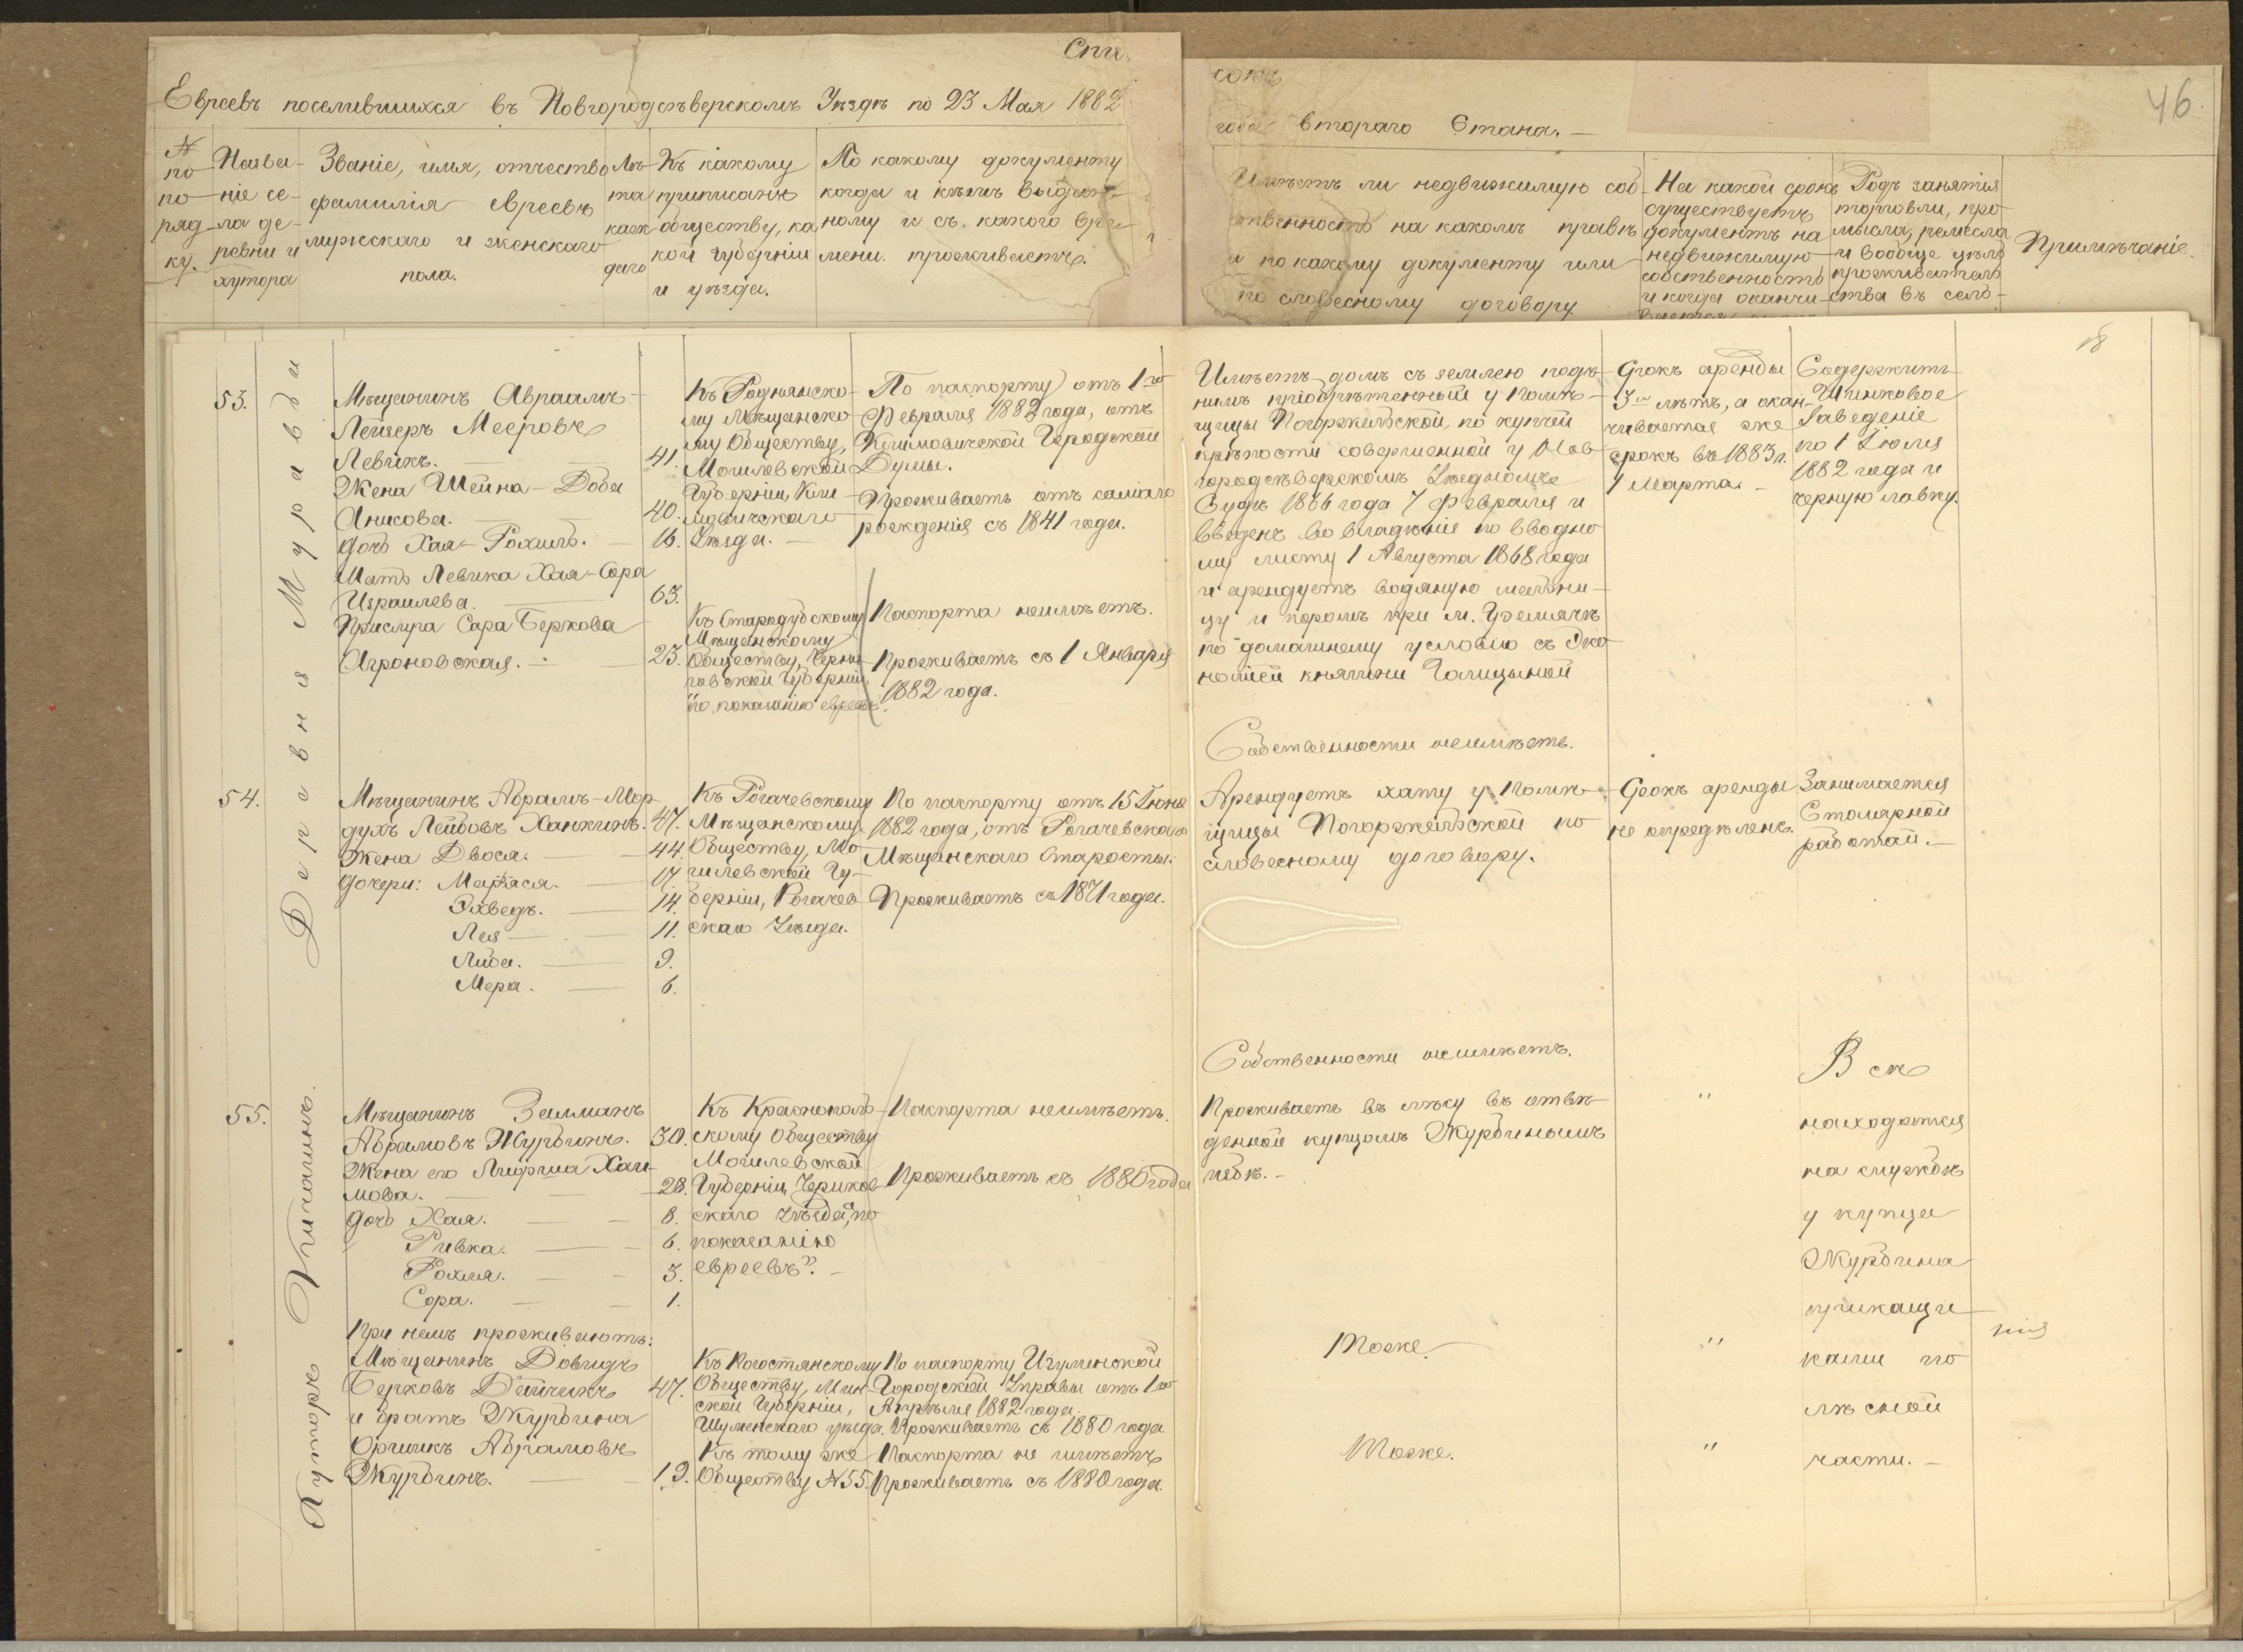 Спи
сокъ
46
Евреевъ поселившихся въ Новгородсѣверскомъ Уѣздѣ по 23 Мая 1882
года втораго Стана.
№
по
по-
ряд-
ку.
Назва-
ніе се-
ла де-
ревни и
хутора
Званіе, имя, отчество
фамилія евреевъ
мужскаго и женскаго
пола.
Лѣ-
та
каж
даго
Къ какому
приписанъ
обществу, ка
кой губерніи
и уѣзда.
По какому документу
когда и кѣмъ выдан-
ному и съ какого вре-
мени проживаетъ.
Имѣетъ ли недвижимую соб-
ственность на какомъ правѣ
и по какому документу или
по словесному договору
На какой срокъ
существуетъ
документъ на
недвижимую
собственность
и когда оканчи-
Родъ занятія
торговли, про
мысла, ремесла
и вообще цѣль
прожиательс
ства въ селѣ-
Примѣчаніе.
18
Деревня Муравьи
53.
Мѣщанинъ Авраамъ-
Лейзеръ Мееровъ
Левикъ. 41.
Жена Шейна-Доба
Анисова. 40.
Дочь Хая-Рохиль. 16.
Мать Левика Хая-Сора
Израилева. 63.
Прислуга Сара Беркова
Аграновская. 23.
Къ Роднянско-
му Мѣщанско-
му Обществу,
Могилевской
Губерніи, Кли-
мовичскаго
Уѣзда.
Къ Стародубскому
Мѣщанскому
Обществу, Черни-
говской Губерніи,
"по показанію евреевъ".
По паспорту отъ 1го
Февраля 1882 года, отъ
Климовичской Городской
Думы.
Проживаетъ отъ самаго
рожденія съ 1841 года.
Паспорта неимѣетъ.
Проживаетъ съ 1 Января
1882 года.
Имѣетъ домъ съ землею подъ
нимъ пріобрѣтенный у Помѣ-
щицы Погоржельской, по купчей
крѣпости совершенной у Нов-
городсѣверскомъ Уѣздномъ
Судѣ 1866 года 7 Февраля и
введенъ во владѣніе по вводно-
му листу 1 Августа 1868 года
и арендуетъ водяную мельни-
цу и поромъ при м. Гремячкѣ
по домашнему условію съ Эко-
номіей княгини Голицыной
Срокъ аренды
3 лѣтъ, а окан-
чивается же
срокъ въ 1883 г.
1 Марта.
Содержитъ
Шинковое
Заведеніе
по 1 Іюля
1882 года и
черную лавку.
54.
Мѣщанинъ Абрамъ-Мор
духъ Лейбовъ Ханкинъ. 47.
Жена Двося. 44.
Дочери: Маряся. 17
Эхведъ. 14.
Лея 11.
Либа. 9.
Мера. 6.
Къ Рогачевскому
Мѣщанскому
Обществу, Мо-
гилевской Гу-
берніи, Рогачев-
скаго Уѣзда.
По паспорту отъ 15 Іюня
1882 года, отъ Рогачевскаго
Мѣщанскаго Старосты.
Проживаетъ съ 1871 года.
Собственности неимѣетъ.
Арендуетъ хату у Помѣ-
щицы Погоржельской по
словесному договору.
Срокъ аренды
не опредѣленъ.
Занимается
Столярной
работай.
Хуторъ
55.
Мѣщанинъ Залманъ
Абрамовъ Журбинъ. 30.
Жена его Лифша Хаи-
мова. 28.
Дочь Хая. 8.
Ривка. 6.
Рохля. 3.
Сора. 1.
При немъ проживаютъ:
Мѣщанинъ Довидъ
Берковъ Дейчикъ 47.
и братъ Журбина
Оршикъ Абрамовъ
Журбинъ. 19.
Къ Краснополь-
скому Обществу
Могилевской
Губерніи, Чериков-
скаго Уѣзда, "по
показанію
евреевъ".
Къ Погостянскому
Обществу, Мин-
ской Губерніи,
Игуменскаго уѣзда.
Къ тому же
Обществу №55.
Паспорта неимѣетъ.
Проживаетъ съ 1880 года
По паспорту Игуменской
Городской Управы отъ 1го
Апрѣля 1882 года.
Проживаетъ съ 1880 года
Паспорта не имѣетъ
Проживаетъ съ 1880 года.
Собственности неимѣетъ.
Проживаетъ въ лѣсу въ отве-
денной купцомъ Журбинымъ
избѣ.
Тоже.
Тоже.
"
"
"
Всѣ
находятся
на службѣ
у купца
Журбина
прикащи
ками по
лѣсной
части.